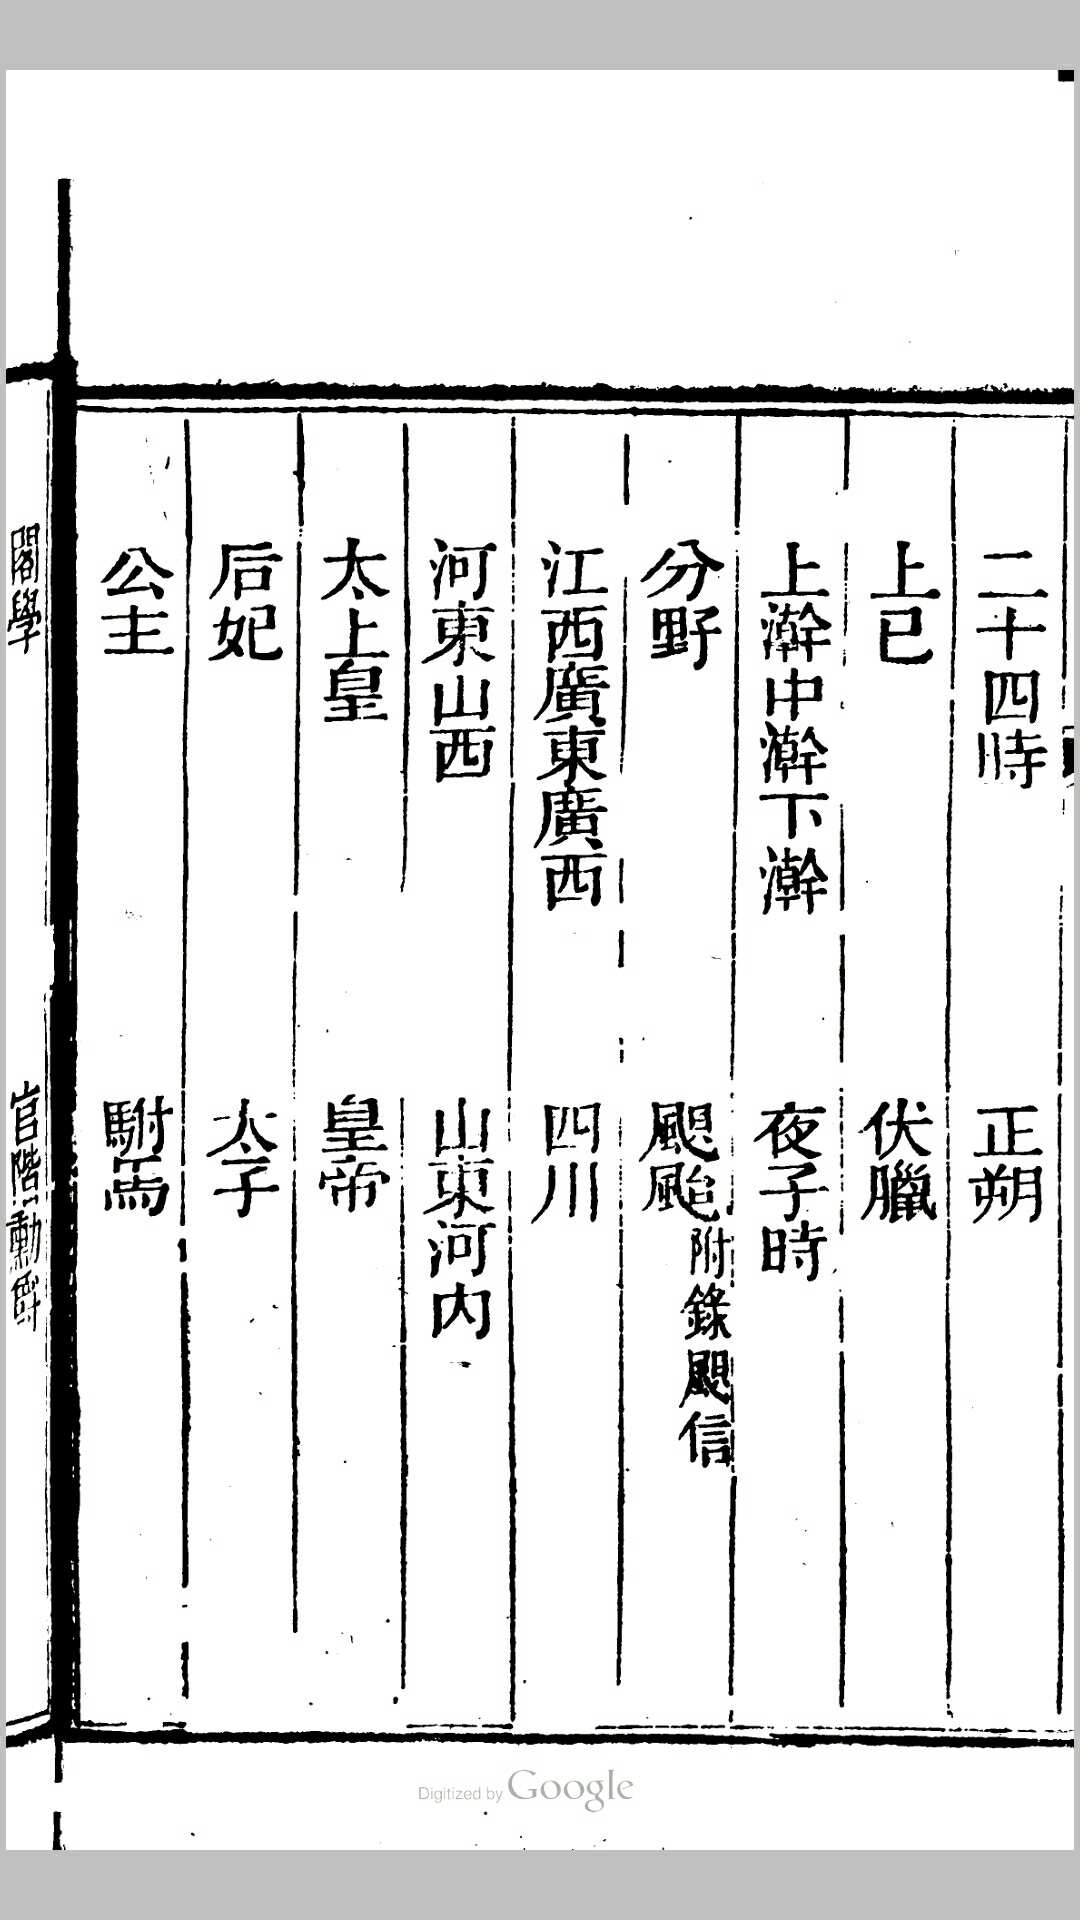 二十四時　正朔
上巳　伏臘
上澣中澣下澣　夜子時
分野　颶颱附錄颶信
江西廣東廣西　四川
河東山西　山東河內
太上皇　皇帝
后妃　太子
公主　駙馬
閣學　官階勳爵
Digitized by Google